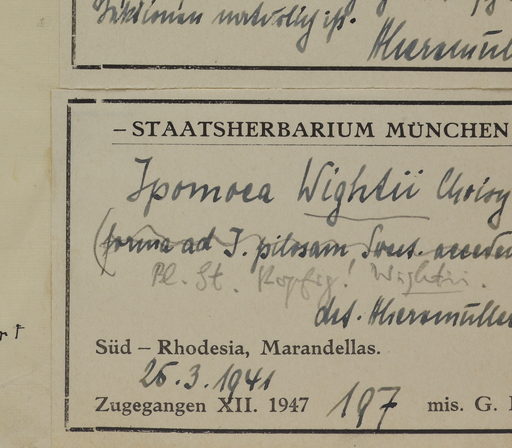 natürlich ist.
– STAATSHERBARIUM MÜNCHEN
Ipomoea Wightii Choisy
(forma ad I. pilosam Sweet.
Bl. St. Kopfig! Wightii.
det. Hieremüller
Süd – Rhodesia, Marandellas.
25.3.1941
Zugegangen XII. 1947 197 mis. G.